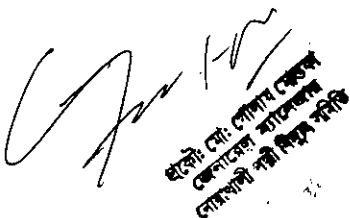 প্রকৌঃ মোঃ গোলাম মোস্তফা
জেনারেল ম্যানেজার
নোয়াখালী পল্লী বিদ্যুৎ সমিতি